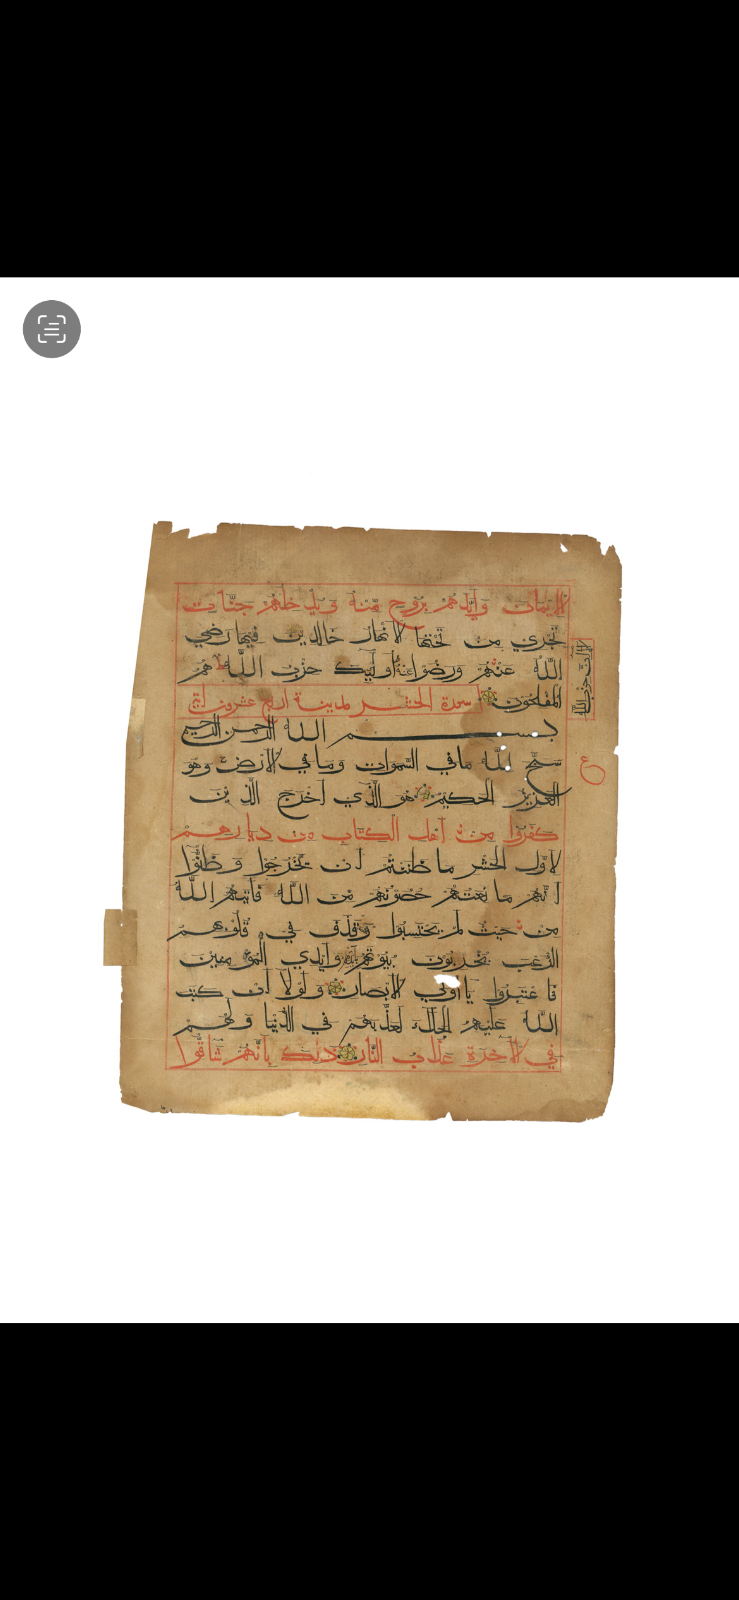 الإيمان وأيّدهم بروح مّنه ويدخلهم جنّات
تجري من تحتها الأنهار خالدين فيها رضي
اللّه عنهم ورضوا عنه أولئك حزب اللّه هم
المفلحون سورة الحشر مدينة اربع عشرون اية
بسم الله الرحمن الرحيم
سبّح للّه ما في السّموات وما في الأرض وهو
العزيز الحكيم هو الّذي أخرج الّذين
كفروا من أهل الكتاب من ديارهم
لأوّل الحشر ما ظننتم أن يخرجوا وظنّوا
أنّهم ما نعتهم حصونهم من اللّه فأتىهم اللّه
من حيث لم يحتسبوا وقذف في قلوبهم
الرّعب يخربون بيوتهم بأيديهم وأيدي المؤمنين
فاعتبروا يا أولي الأبصار ولولا أن كتب
اللّه عليهم الجلاء لعذّبهم في الدّنيا ولهم
في الآخرة عذاب النّار ذلك بأنّهم شاقّوا
ع